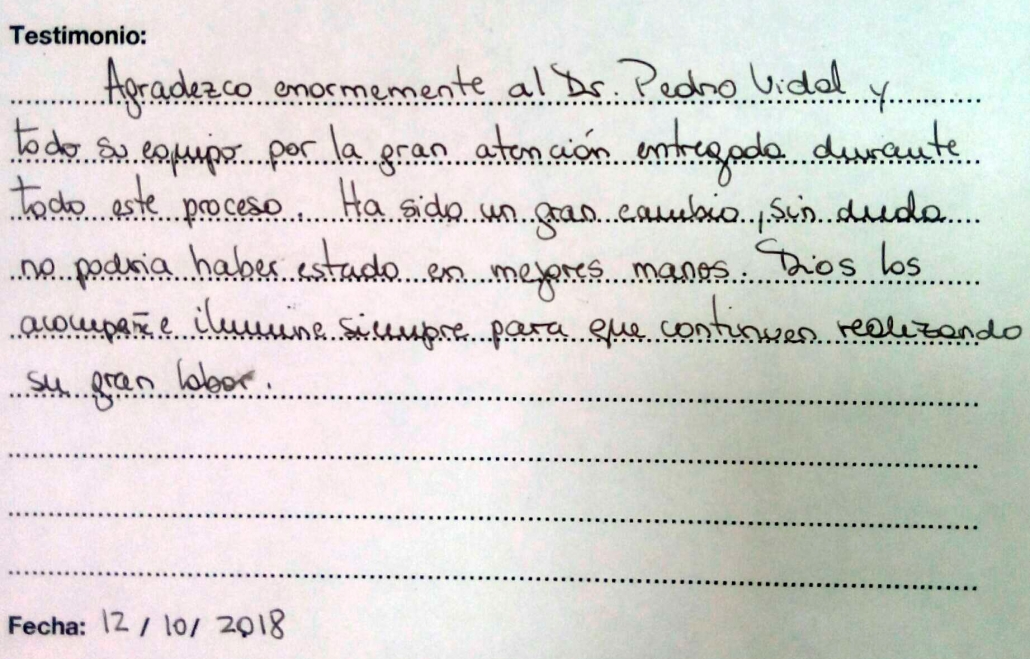 Testimonio:
Agradezco enormemente al Dr. Pedro Vidal y
todo su equipo por la gran atención entregada durante
todo este proceso. Ha sido un gran cambio, sin duda
no podria haber estado en mejores manos. Dios los
acompañe e ilumine siempre para que continuen realizando
su gran labor.
Fecha: 12 / 10 / 2018